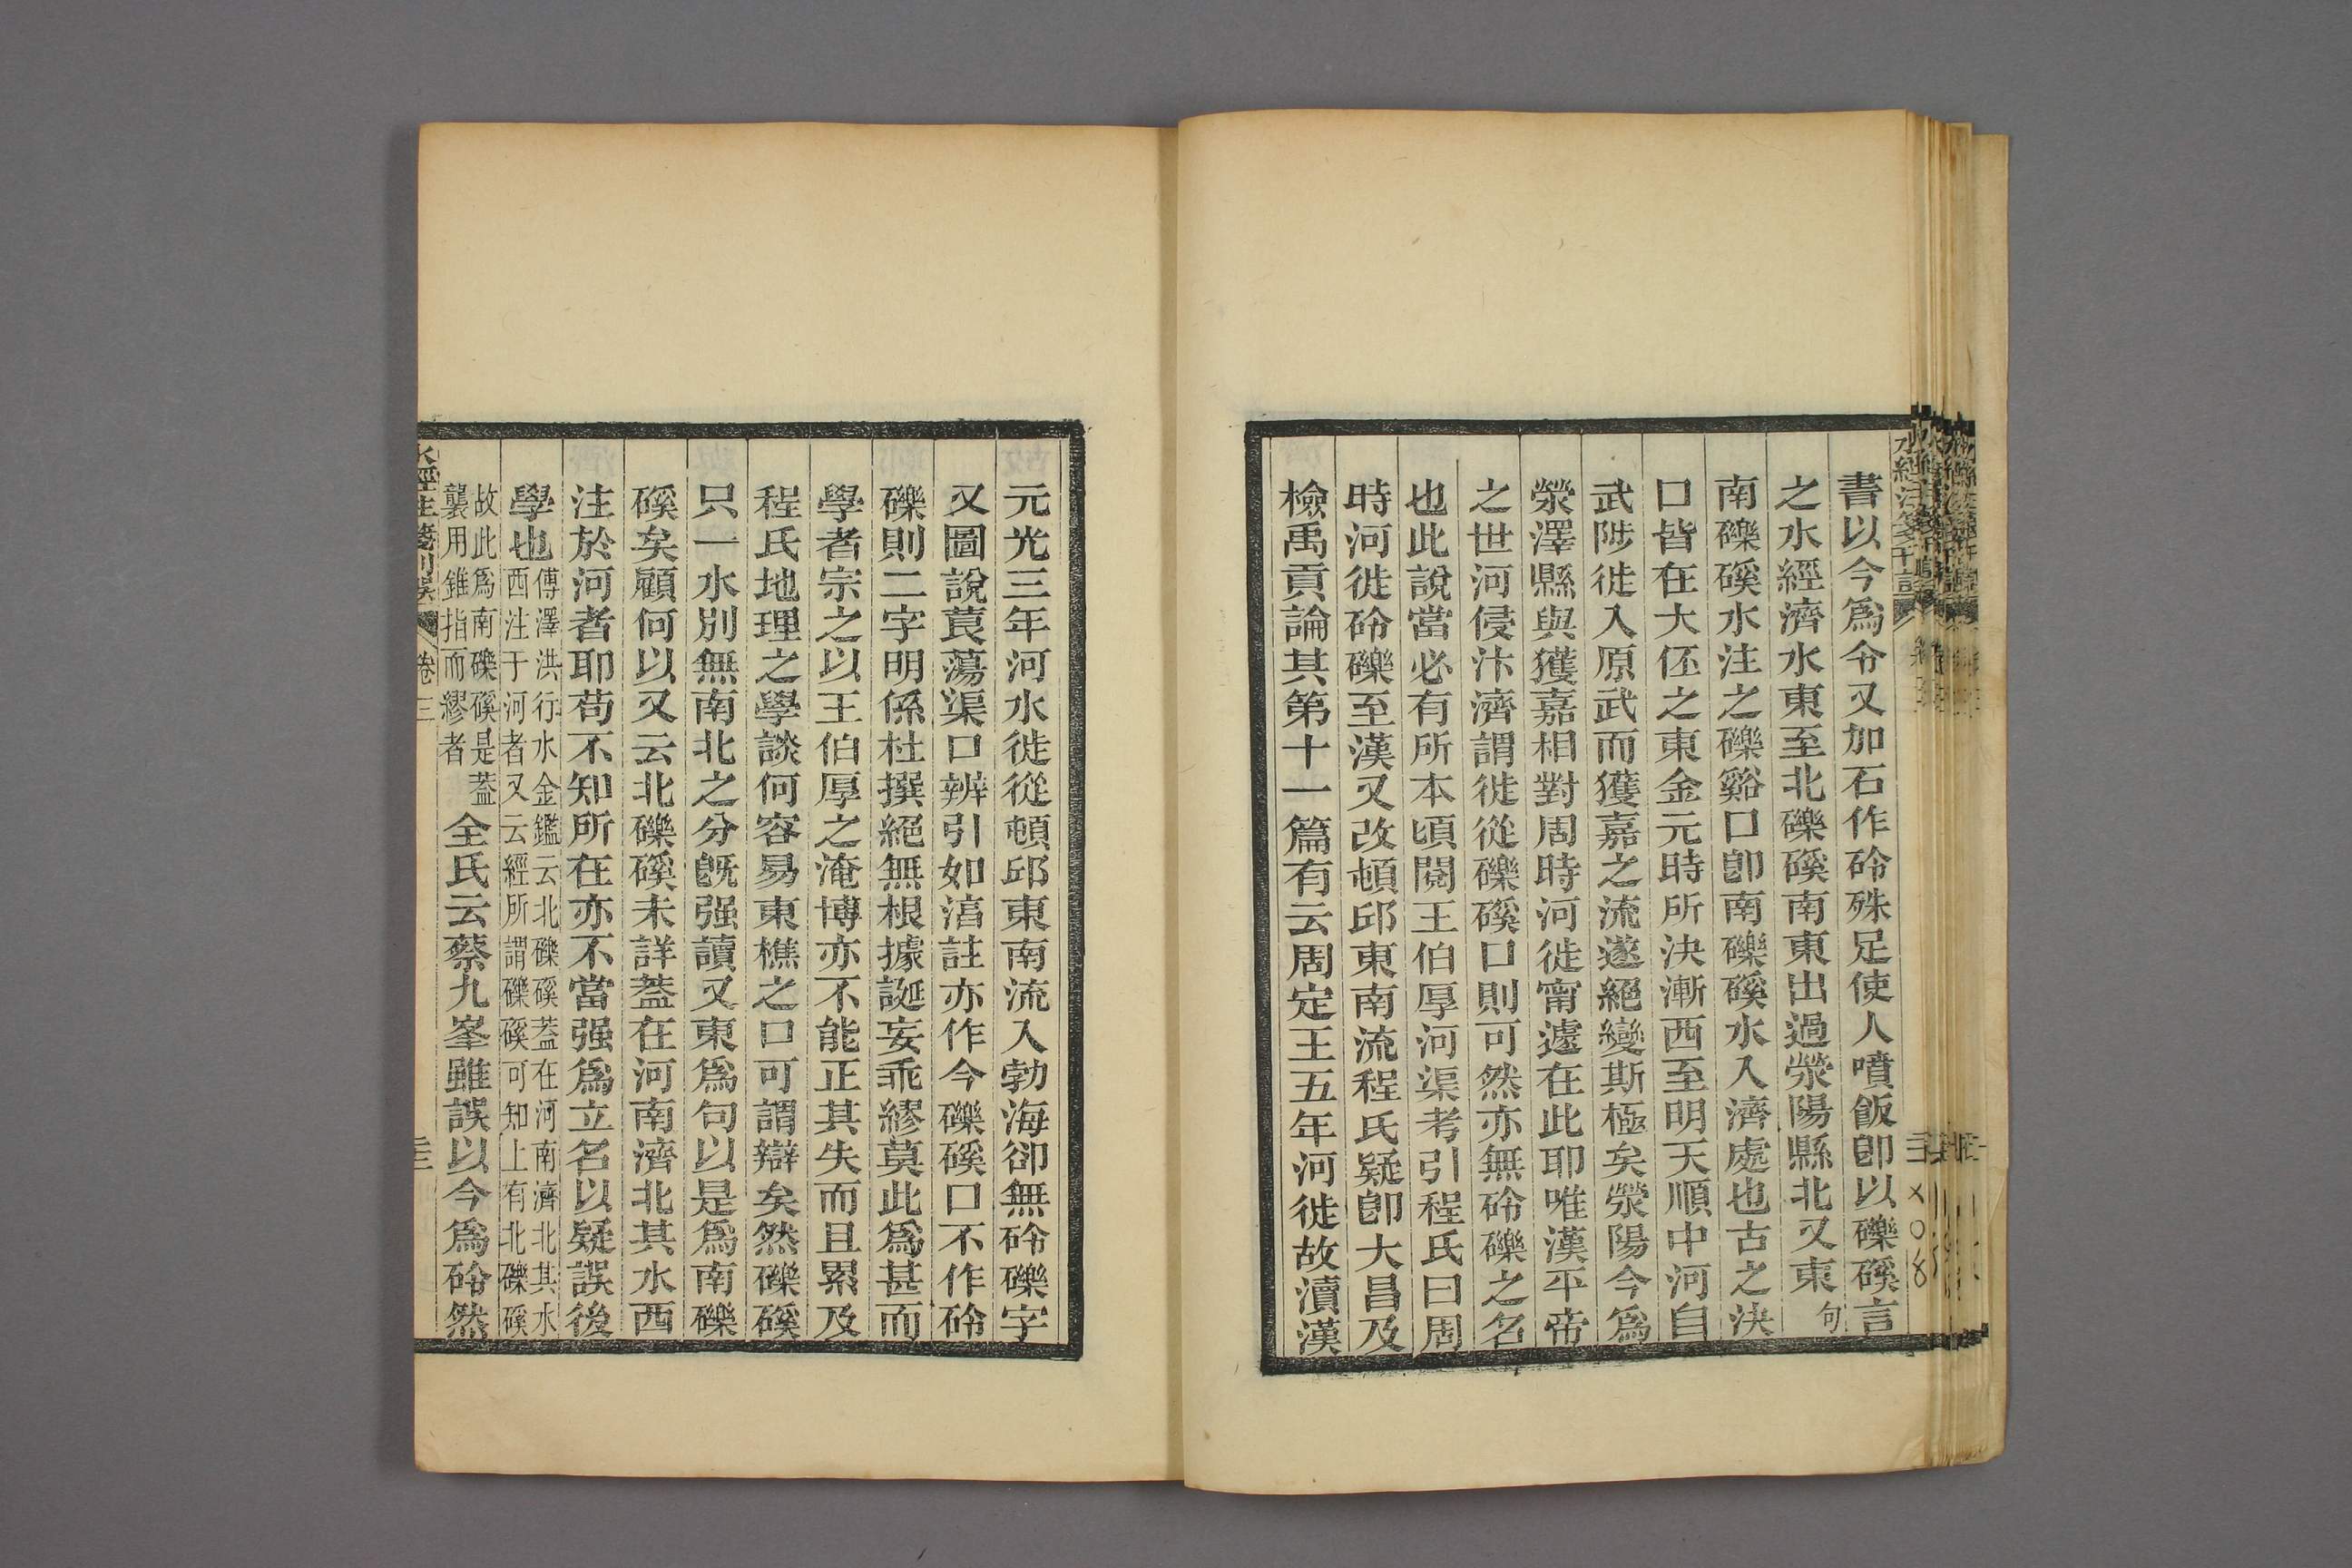 書以今爲令又加石作砱殊足使人噴飯卽以礫磎言
之水經濟水東至北礫磎南東出過滎陽縣北又東句
南礫磎水注之礫谿口卽南礫磎水入濟處也古之決
口皆在大伾之東金元時所決漸西至明天順中河自
武陟徙入原武而獲嘉之流遂絕變斯極矣滎陽今爲
滎澤縣與獲嘉相對周時河徙甯遽在此耶唯漢平帝
之世河侵汴濟謂徙從礫磎口則可然亦無砱礫之名
也此說當必有所本頃閱王伯厚河渠考引程氏曰周
時河徙砱礫至漢又改頓邱東南流程氏疑卽大昌及
檢禹貢論其第十一篇有云周定王五年河徙故瀆漢
元光三年河水徙從頓邱東南流入勃海卻無砱礫字
又圖說莨蕩渠口辨引如淳註亦作今礫磎口不作砱
礫則二字明係杜撰絕無根據誕妄乖繆莫此爲甚而
學者宗之以王伯厚之淹博亦不能正其失而且累及
程氏地理之學談何容易東樵之口可謂辯矣然礫磎
只一水別無南北之分旣强讀又東爲句以是爲南礫
磎矣顧何以又云北礫磎未詳葢在河南濟北其水西
注於河者耶苟不知所在亦不當强爲立名以疑誤後
學也
傅澤洪行水金鑑云北礫磎葢在河南濟北其水
西注于河者又云經所謂礫磎可知上有北礫磎
故此爲南礫磎是葢
襲用錐指而繆者
全氏云蔡九峯雖誤以今爲砱然
水經注箋刊誤
卷三